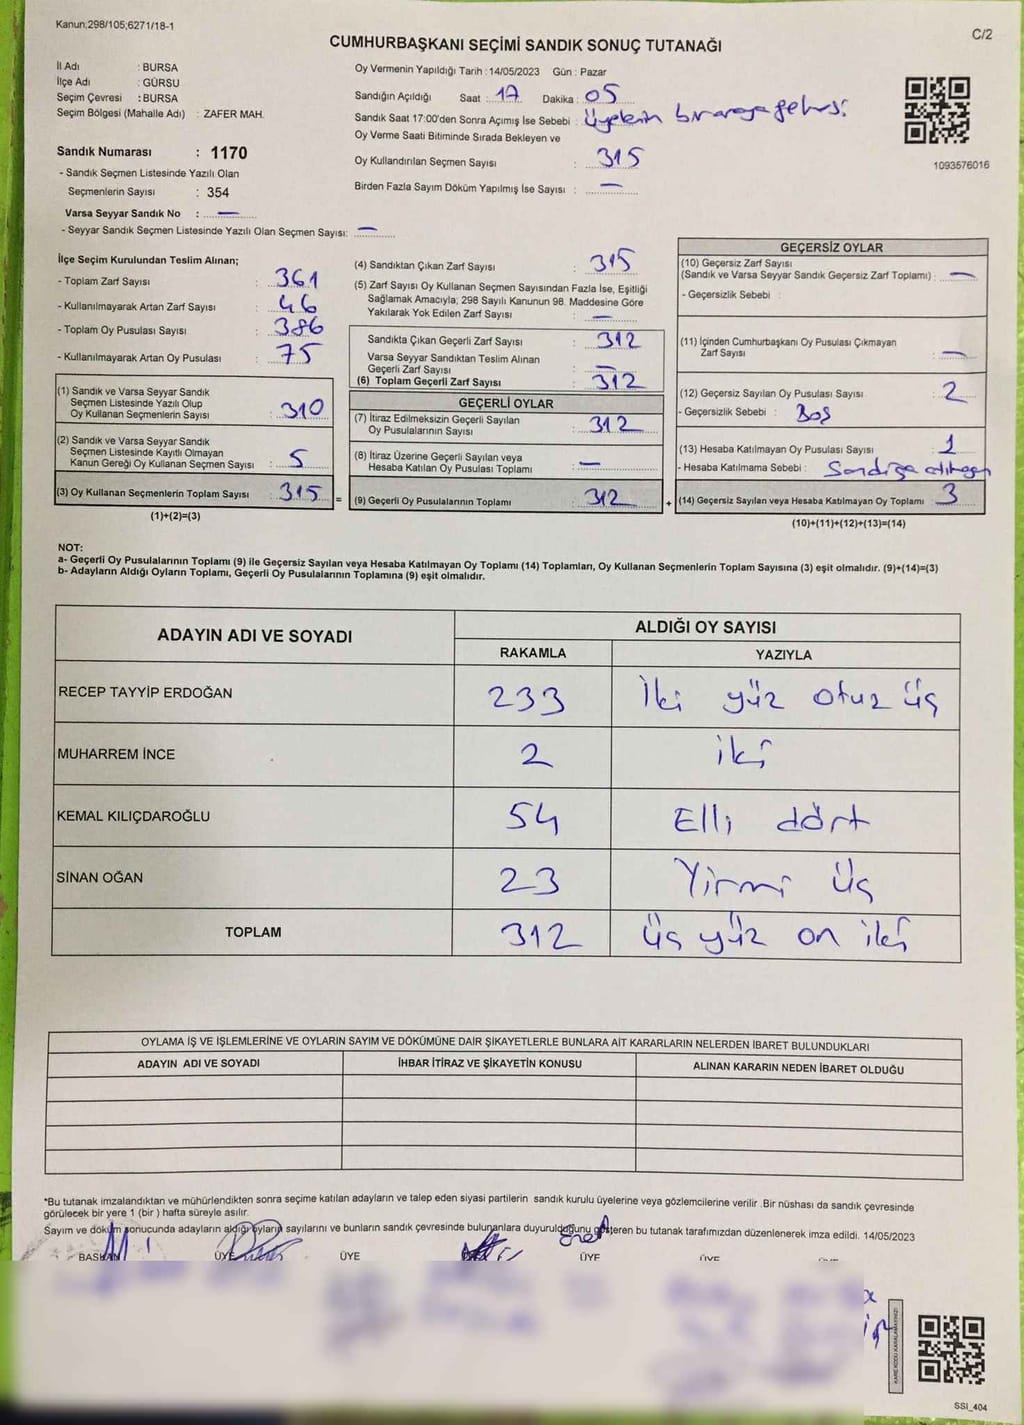 Kanun;298/105;6271/18-1
C/2
CUMHURBAŞKANI SEÇİMİ SANDIK SONUÇ TUTANAĞI
İl Adı : BURSA
İlçe Adı : GÜRSU
Seçim Çevresi : BURSA
Seçim Bölgesi (Mahalle Adı) : ZAFER MAH.
Sandık Numarası : 1170
- Sandık Seçmen Listesinde Yazılı Olan
Seçmenlerin Sayısı : 354
Varsa Seyyar Sandık No : —
- Seyyar Sandık Seçmen Listesinde Yazılı Olan Seçmen Sayısı: —
Oy Vermenin Yapıldığı Tarih : 14/05/2023 Gün : Pazar
Sandığın Açıldığı Saat : 17 Dakika : 05
Sandık Saat 17:00'den Sonra Açımış İse Sebebi : Üyelerin bir araya gelmesi
Oy Verme Saati Bitiminde Sırada Bekleyen ve
Oy Kullandırılan Seçmen Sayısı : 315
Birden Fazla Sayım Döküm Yapılmış İse Sayısı : —
1093576016
İlçe Seçim Kurulundan Teslim Alınan;
- Toplam Zarf Sayısı : 361
- Kullanılmayarak Artan Zarf Sayısı : 46
- Toplam Oy Pusulası Sayısı : 386
- Kullanılmayarak Artan Oy Pusulası : 75
(1) Sandık ve Varsa Seyyar Sandık
Seçmen Listesinde Yazılı Olup
Oy Kullanan Seçmenlerin Sayısı : 310
(2) Sandık ve Varsa Seyyar Sandık
Seçmen Listesinde Kayıtlı Olmayan
Kanun Gereği Oy Kullanan Seçmen Sayısı : 5
(3) Oy Kullanan Seçmenlerin Toplam Sayısı : 315 =
(1)+(2)=(3)
(4) Sandıktan Çıkan Zarf Sayısı : 315
(5) Zarf Sayısı Oy Kullanan Seçmen Sayısından Fazla İse, Eşitliği
Sağlamak Amacıyla; 298 Sayılı Kanunun 98. Maddesine Göre
Yakılarak Yok Edilen Zarf Sayısı : —
Sandıkta Çıkan Geçerli Zarf Sayısı : 312
Varsa Seyyar Sandıktan Teslim Alınan
Geçerli Zarf Sayısı : —
(6) Toplam Geçerli Zarf Sayısı : 312
GEÇERLİ OYLAR
(7) İtiraz Edilmeksizin Geçerli Sayılan
Oy Pusulalarının Sayısı : 312
(8) İtiraz Üzerine Geçerli Sayılan veya
Hesaba Katılan Oy Pusulası Toplamı : —
(9) Geçerli Oy Pusulalarının Toplamı : 312 +
GEÇERSİZ OYLAR
(10) Geçersiz Zarf Sayısı
(Sandık ve Varsa Seyyar Sandık Geçersiz Zarf Toplamı) : —
- Geçersizlik Sebebi :
(11) İçinden Cumhurbaşkanı Oy Pusulası Çıkmayan
Zarf Sayısı : —
(12) Geçersiz Sayılan Oy Pusulası Sayısı : 2
- Geçersizlik Sebebi : Boş
(13) Hesaba Katılmayan Oy Pusulası Sayısı : 1
- Hesaba Katılmama Sebebi : Sandığa
(14) Geçersiz Sayılan veya Hesaba Katılmayan Oy Toplamı : 3
(10)+(11)+(12)+(13)=(14)
NOT:
a- Geçerli Oy Pusulalarının Toplamı (9) ile Geçersiz Sayılan veya Hesaba Katılmayan Oy Toplamı (14) Toplamları, Oy Kullanan Seçmenlerin Toplam Sayısına (3) eşit olmalıdır. (9)+(14)=(3)
b- Adayların Aldığı Oyların Toplamı, Geçerli Oy Pusulalarının Toplamına (9) eşit olmalıdır.
ADAYIN ADI VE SOYADI ALDIĞI OY SAYISI
RAKAMLA YAZIYLA
RECEP TAYYİP ERDOĞAN 233 İki yüz otuz üç
MUHARREM İNCE 2 iki
KEMAL KILIÇDAROĞLU 54 Elli dört
SİNAN OĞAN 23 Yirmi Üç
TOPLAM 312 üç yüz on iki
OYLAMA İŞ VE İŞLEMLERİNE VE OYLARIN SAYIM VE DÖKÜMÜNE DAİR ŞİKAYETLERLE BUNLARA AİT KARARLARIN NELERDEN İBARET BULUNDUKLARI
ADAYIN ADI VE SOYADI İHBAR İTİRAZ VE ŞİKAYETİN KONUSU ALINAN KARARIN NEDEN İBARET OLDUĞU
*Bu tutanak imzalandıktan ve mühürlendikten sonra seçime katılan adayların ve talep eden siyasi partilerin sandık kurulu üyelerine veya gözlemcilerine verilir .Bir nüshası da sandık çevresinde
görülecek bir yere 1 (bir ) hafta süreyle asılır.
Sayım ve döküm sonucunda adayların aldığı oyların sayılarını ve bunların sandık çevresinde bulunanlara duyurulduğunu gösteren bu tutanak tarafımızdan düzenlenerek imza edildi. 14/05/2023
BAŞKAN ÜYE ÜYE ÜYE ÜYE
SSI_404